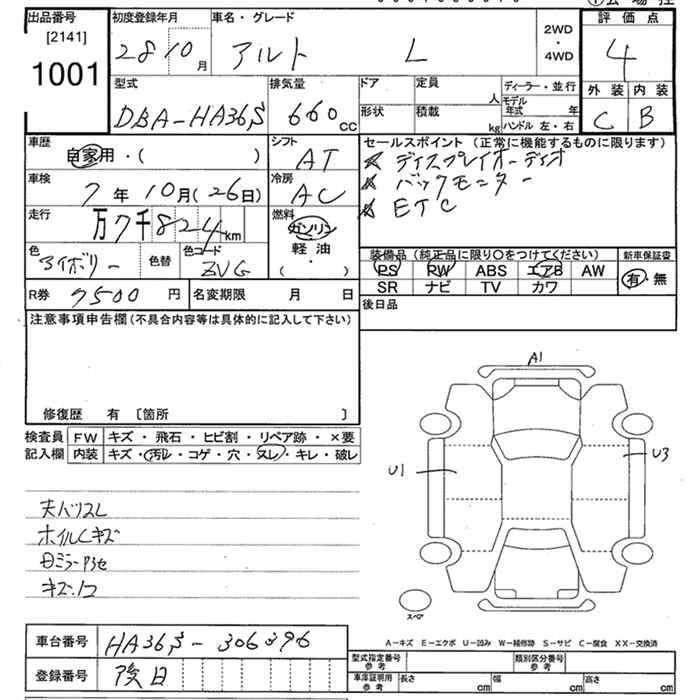 出品番号 [2141] 1001
初度登録年月 28 10月
車名・グレード アルト L
2WD・4WD
評価点 4
型式 DBA-HA36S
排気量 660cc
ドア 定員 人
形状 積載 kg
ディーラー・並行
モデル年式 年
ハンドル 左・右
外装 C 内装 B
車歴 自家用・( )
シフト AT
車検 7年10月(26日)
冷房 AC
走行 万7千824km
燃料 ガソリン 軽油 ( )
色 アイボリー 色替 色コード ZVG
セールスポイント (正常に機能するものに限ります)
ディスプレイオーディオ
バックモニター
ETC
装備品 (純正品に限り○をつけてください) 新車保証書
PS PW ABS エアB AW 有・無
SR ナビ TV カワ
R券 7500円 名変期限 月 日
後日品
注意事項申告欄 (不具合内容等は具体的に記入して下さい)
修復歴 有 〔箇所 〕
検査員 FW キズ・飛石・ヒビ割・リペア跡・×要
記入欄 内装 キズ・汚レ・コゲ・穴・スレ・キレ・破レ
A1
U1 U3
ホイルCキズ
スペア
A-キズ E-エクボ U-凹み W-補修跡 S-サビ C-腐食 XX-交換済
車台番号 HA36S-306396
登録番号 後日
型式指定番号 参考 類別区分番号 参考
車庫証明用 参考 長さ cm 幅 cm 高さ cm